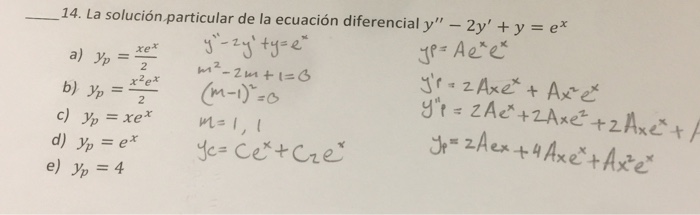 ___14. La solución particular de la ecuación diferencial y'' – 2y' + y = eˣ
a) yₚ = xeˣ/2
b) yₚ = x²eˣ/2
c) yₚ = xeˣ
d) yₚ = eˣ
e) yₚ = 4
y''-2y'+y=eˣ
m²-2m+1=0
(m-1)²=0
m=1,1
yc=Ceˣ+C2eˣ
yp=Aeˣeˣ
y'p=2Axeˣ+Ax²eˣ
y''p=2Aeˣ+2Axe²+2Axeˣ+A
yp=2Aex+4Axeˣ+Ax²eˣ